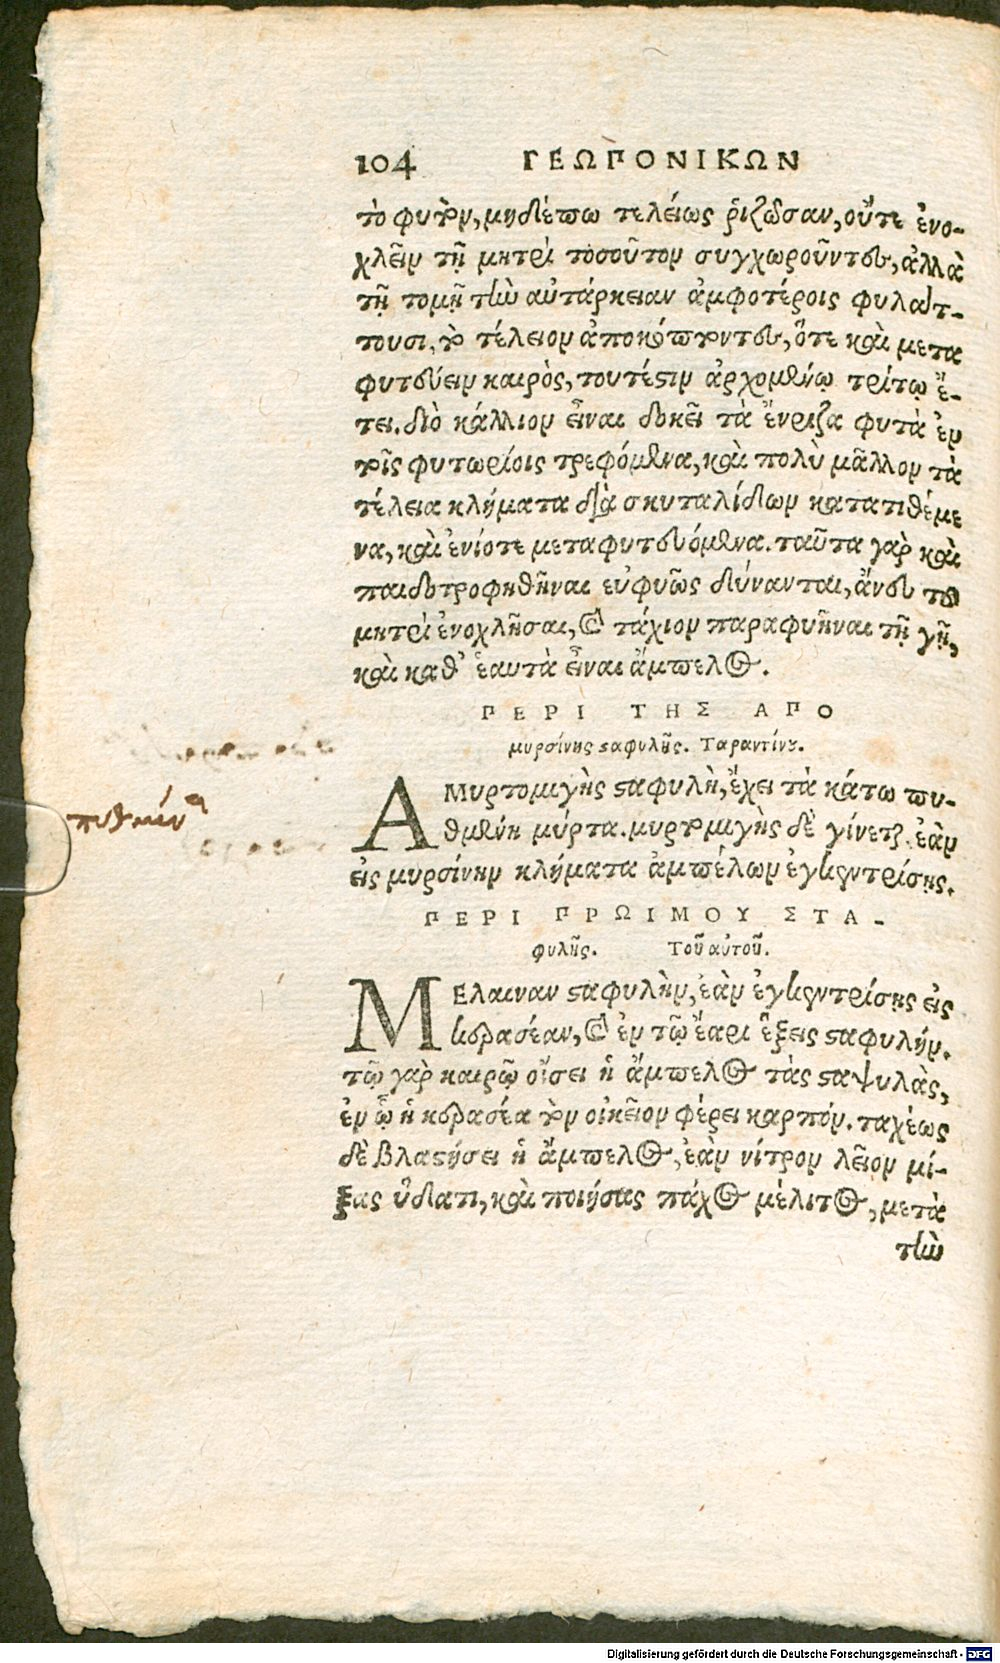 104 ΓΕΩΠΟΝΙΚΩΝ
τὸ φυτὸν, μηδέπω τελείως ῥιζῶσαν, οὔτε ἐνο-
χλεῖν τῇ μητρὶ τοσοῦτον συγχωροῦντες, ἀλλὰ
τῇ τομῇ τὴν αὐτάρκειαν ἀμφοτέροις φυλάτ-
τουσι, τὸ τέλειον ἀποκόπτοντες, ὅτε καὶ μετα
φυτεύειν καιρὸς, τουτέστιν ἀρχομένῳ τρίτῳ ἔ-
τει. διὸ κάλλιον εἶναι δοκεῖ τὰ ἔνριζα φυτὰ ἐν
τοῖς φυτωρίοις τρεφόμενα, καὶ πολὺ μᾶλλον τὰ
τέλεια κλήματα διὰ σκυταλίδων κατατιθέμε
να, καὶ ἐνίοτε μεταφυτευόμενα. ταῦτα γὰρ καὶ
παιδοτροφηθῆναι εὐφυῶς δύνανται, ἄνευ τοῦ
μητρὶ ἐνοχλῆσαι, καὶ τάχιον παραφυῆναι τῇ γῇ,
καὶ καθ' ἑαυτὰ εἶναι ἄμπελος.
ΠΕΡΙ ΤΗΣ ΑΠΟ
μυρσίνης σταφυλῆς. Ταραντίνου.
ΑΜυρτομιγὴς σταφυλὴ, ἔχει τὰ κάτω πυ-
πυθμένα
θμένη μύρτα. μυρτομιγὴς δὲ γίνεται ἐὰν
εἰς μυρσίνην κλήματα ἀμπέλων ἐγκεντρίσῃς.
ΠΕΡΙ ΠΡΩΙΜΟΥ ΣΤΑ-
φυλῆς. Τοῦ αὐτοῦ.
ΜΕλαιναν σταφυλὴν, ἐὰν ἐγκεντρίσῃς εἰς
κερασέαν, καὶ ἐν τῷ ἔαρι ἕξεις σταφυλήν.
τῷ γὰρ καιρῷ οἴσει ἡ ἄμπελος τὰς σταψυλὰς,
ἐν ᾧ ἡ κερασέα τὸν οἰκεῖον φέρει καρπόν. ταχέως
δὲ βλαστήσει ἡ ἄμπελος, ἐὰν νίτρον λεῖον μί-
ξας ὕδατι, καὶ ποιήσας πάχος μέλιτος, μετὰ
τὴν
Digitalisierung gefördert durch die Deutsche Forschungsgemeinschaft - DFG